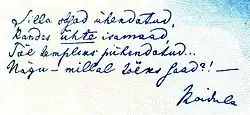 Silla otsad ühendatud,
Kandes ühte isamaad,
Töö templeus pühendatud...
Nägu – millal tõeks saad?! –
Koidula